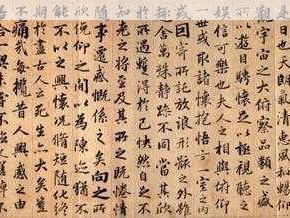 是日也天朗氣清惠風和暢仰
觀宇宙之大俯察品類之盛
所以遊目騁懷足以極視聽之
娛信可樂也夫人之相與俯仰
一世或取諸懷抱悟言一室之
或因寄所託放浪形骸之外雖
趣舍萬殊靜躁不同當其欣
於所遇暫得於己快然自足不
知老之將至及其所之既惓情
隨事遷感慨係之矣向之所
欣俛仰之間以為陳迹猶不
能不以之興懷況脩短隨化終
期於盡古人云死生亦大矣豈
不痛哉每攬昔人興感之由